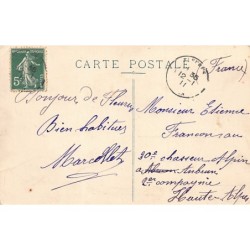 CARTE POSTALE
(France)
5c
Bonjour de Fleury
Bien habitues
Marcellot
Monsieur Etienne
Francon au
30e chasseur Alpin
a Embrun
2er compagnie
Hautes Alpes